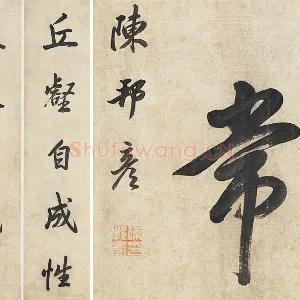 常
陳邦彥
丘壑自成性
Shufawang.CN